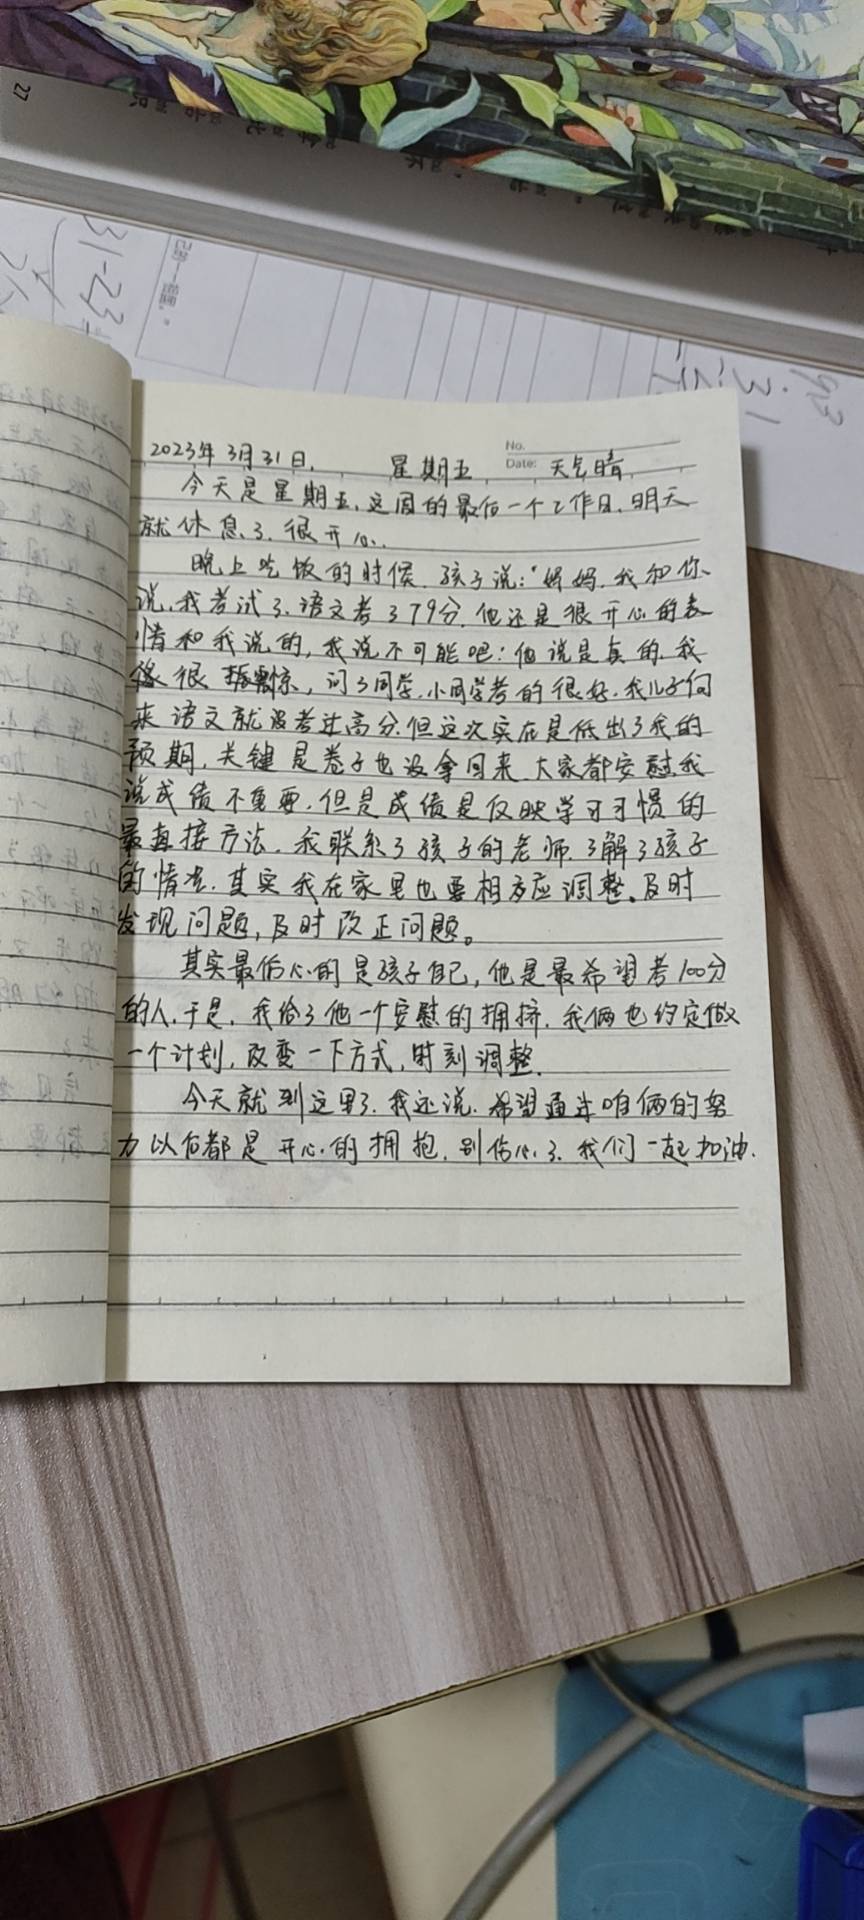 27
己的一幅画。"
31-23
No.
2023年3月31日. 星期五 Date: 天气晴
今天是星期五,这周的最后一个工作日,明天
就休息了.很开心.
晚上吃饭的时候,孩子说:"妈妈,我和你
说,我考试了,语文考了79分,他还是很开心的表
情和我说的,我说不可能吧!他说是真的,我
很震惊,问了同学,小同学考的很好,我儿子向
来语文就没考过高分,但这次实在是低出了我的
预期,关键是卷子也没拿回来,大家都安慰我
说成绩不重要,但是成绩是反映学习习惯的
最直接方法.我联系了孩子的老师,了解了孩子
的情况,其实我在家里也要相应调整。及时
发现问题,及时改正问题。
其实最伤心的是孩子自己,他是最希望考100分
的人,于是,我给了他一个安慰的拥挤,我俩也约定做
一个计划,改变一下方式,时刻调整.
今天就到这里了,我还说,希望通过咱俩的努
力以后都是开心的拥抱,别伤心了,我们一起加油.